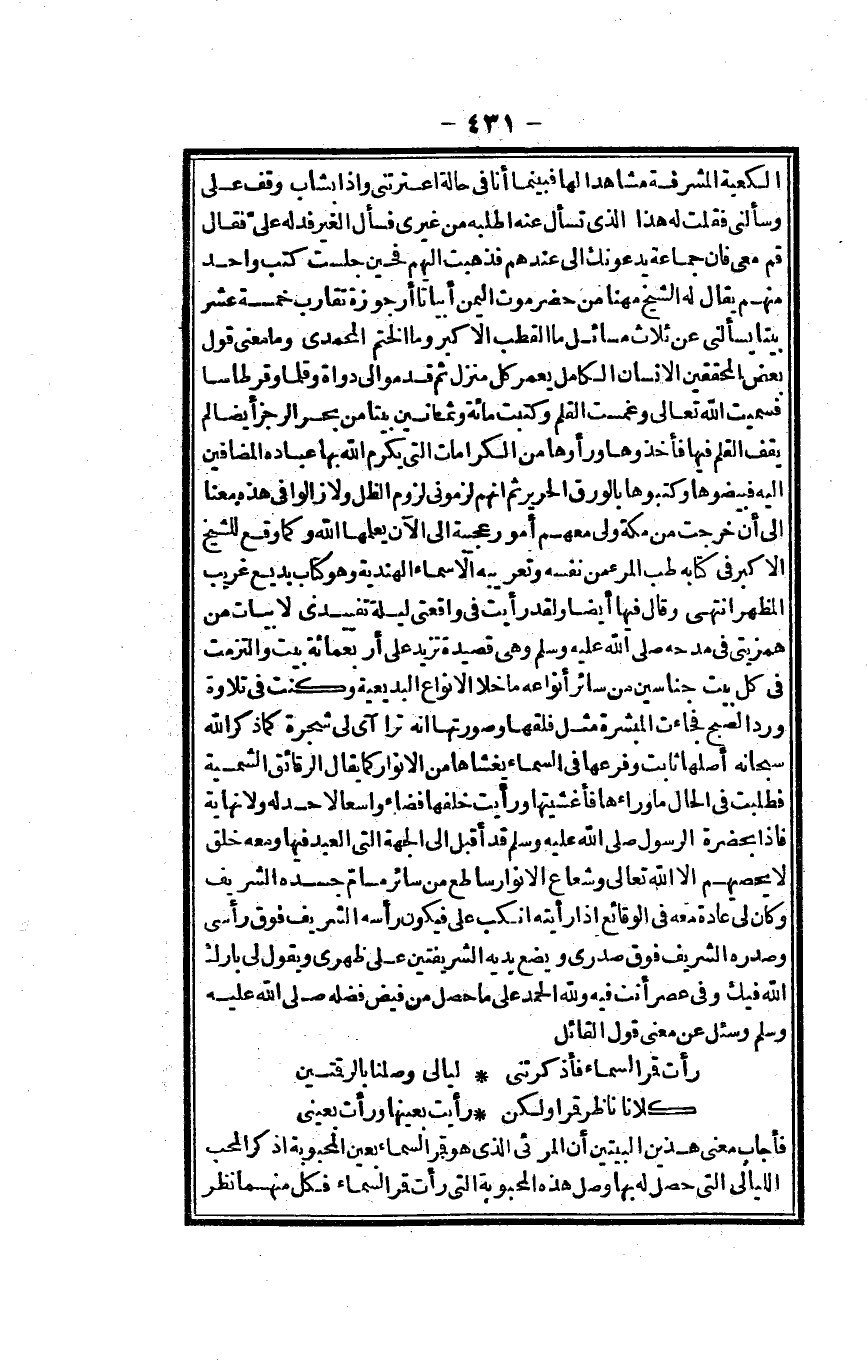 - ٤٣١ -
الكعبة المشرفة مشاهدا لها فبينما أنا فى حالة اعترتنى واذا بشاب وقف على
وسألنى فقلت له هذا الذى تسأل عنه اطلبه من غيرى فسأل الغير فدله على فقال
قم معى فان جماعة يدعونك الى عندهم فذهبت اليهم فحين جلست كتب واحد
منهم يقال له الشيخ مهنا من حضرموت اليمن أبياتا أرجوزة تقارب خمسة عشر
بيتا يسألنى عن ثلاث مسائل ما القطب الاكبر وما الختم المحمدى وما معنى قول
بعض المحققين الانسان الكامل يعمر كل منزل ثم قدموا لى دواة وقلما وقرطاسا
فسميت الله تعالى وغمست القلم وكتبت مائة وثمانين بيتا من بحر الرجز أيضا لم
يقف القلم فيها فأخذوها ورأوها من الكرامات التى يكرم الله بها عباده المضافين
اليه فبيضوها وكتبوها بالورق الحرير ثم انهم لزمونى لزوم الظل ولا زالوا فى هذه معنا
الى أن خرجت من مكة ولى معهم أمور عجيبة الى الآن يعلمها الله وكما وقع للشيخ
الاكبر فى كتابه طب المرء من نفسه وتعريبه الاسماء الهندية وهو كتاب بديع غريب
المظهر انتهى وقال فيها أيضا ولقد رأيت فى واقعتى ليلة تقييدى لابيات من
همزيتى فى مدحه صلى الله عليه وسلم وهى قصيدة تزيد على أربعمائة بيت والتزمت
فى كل بيت جناسين من سائر أنواعه ما خلا الانواع البديعية وكنت فى تلاوة
ورد الصبح فجاءت المبشرة مثل فلقها وصورتها انه تراآى لى شجرة كما ذكر الله
سبحانه أصلها ثابت وفرعها فى السماء يغشاها من الانوار كما يقال الرقائق الشمسية
فطلبت فى الحال ما وراءها فأغشيتها ورأيت خلفها فضاء واسعا لا حد له ولا نهاية
فاذا بحضرة الرسول صلى الله عليه وسلم قد أقبل الى الجهة التى العبد فيها ومعه خلق
لا يحصيهم الا الله تعالى وشعاع الانوار ساطع من سائر مسام جسده الشريف
وكان لى عادة معه فى الوقائع اذا رأيته انكب على فيكون رأسه الشريف فوق رأسى
وصدره الشريف فوق صدرى ويضع يديه الشريفتين على ظهرى ويقول لى بارك
الله فيك وفى عصر أنت فيه ولله الحمد على ما حصل من فيض فضله صلى الله عليه
وسلم وسئل عن معنى قول القائل
رأت قمر السماء فأذكرتنى * ليالى وصلنا بالرقتين
كلانا ناظر قمرا ولكن * رأيت بعينها ورأت بعينى
فأجاب معنى هذين البيتين أن المرئى الذى هو قمر السماء بعين المحبوبة اذكر المحب
الليالى التى حصل له بها وصل هذه المحبوبة التى رأت قمر السماء فكل منهما نظر